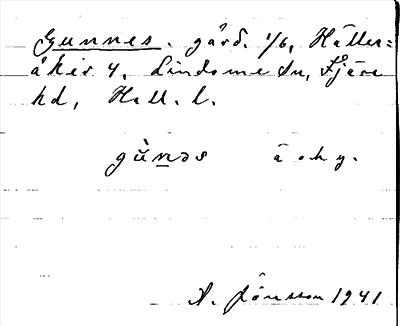 Gunnes. gård. 1/6, Hällesåker 4, Lindome sn, Fjäre
hd, Hall. l.
gùnəs ä och y.
A. Jönsson 1941